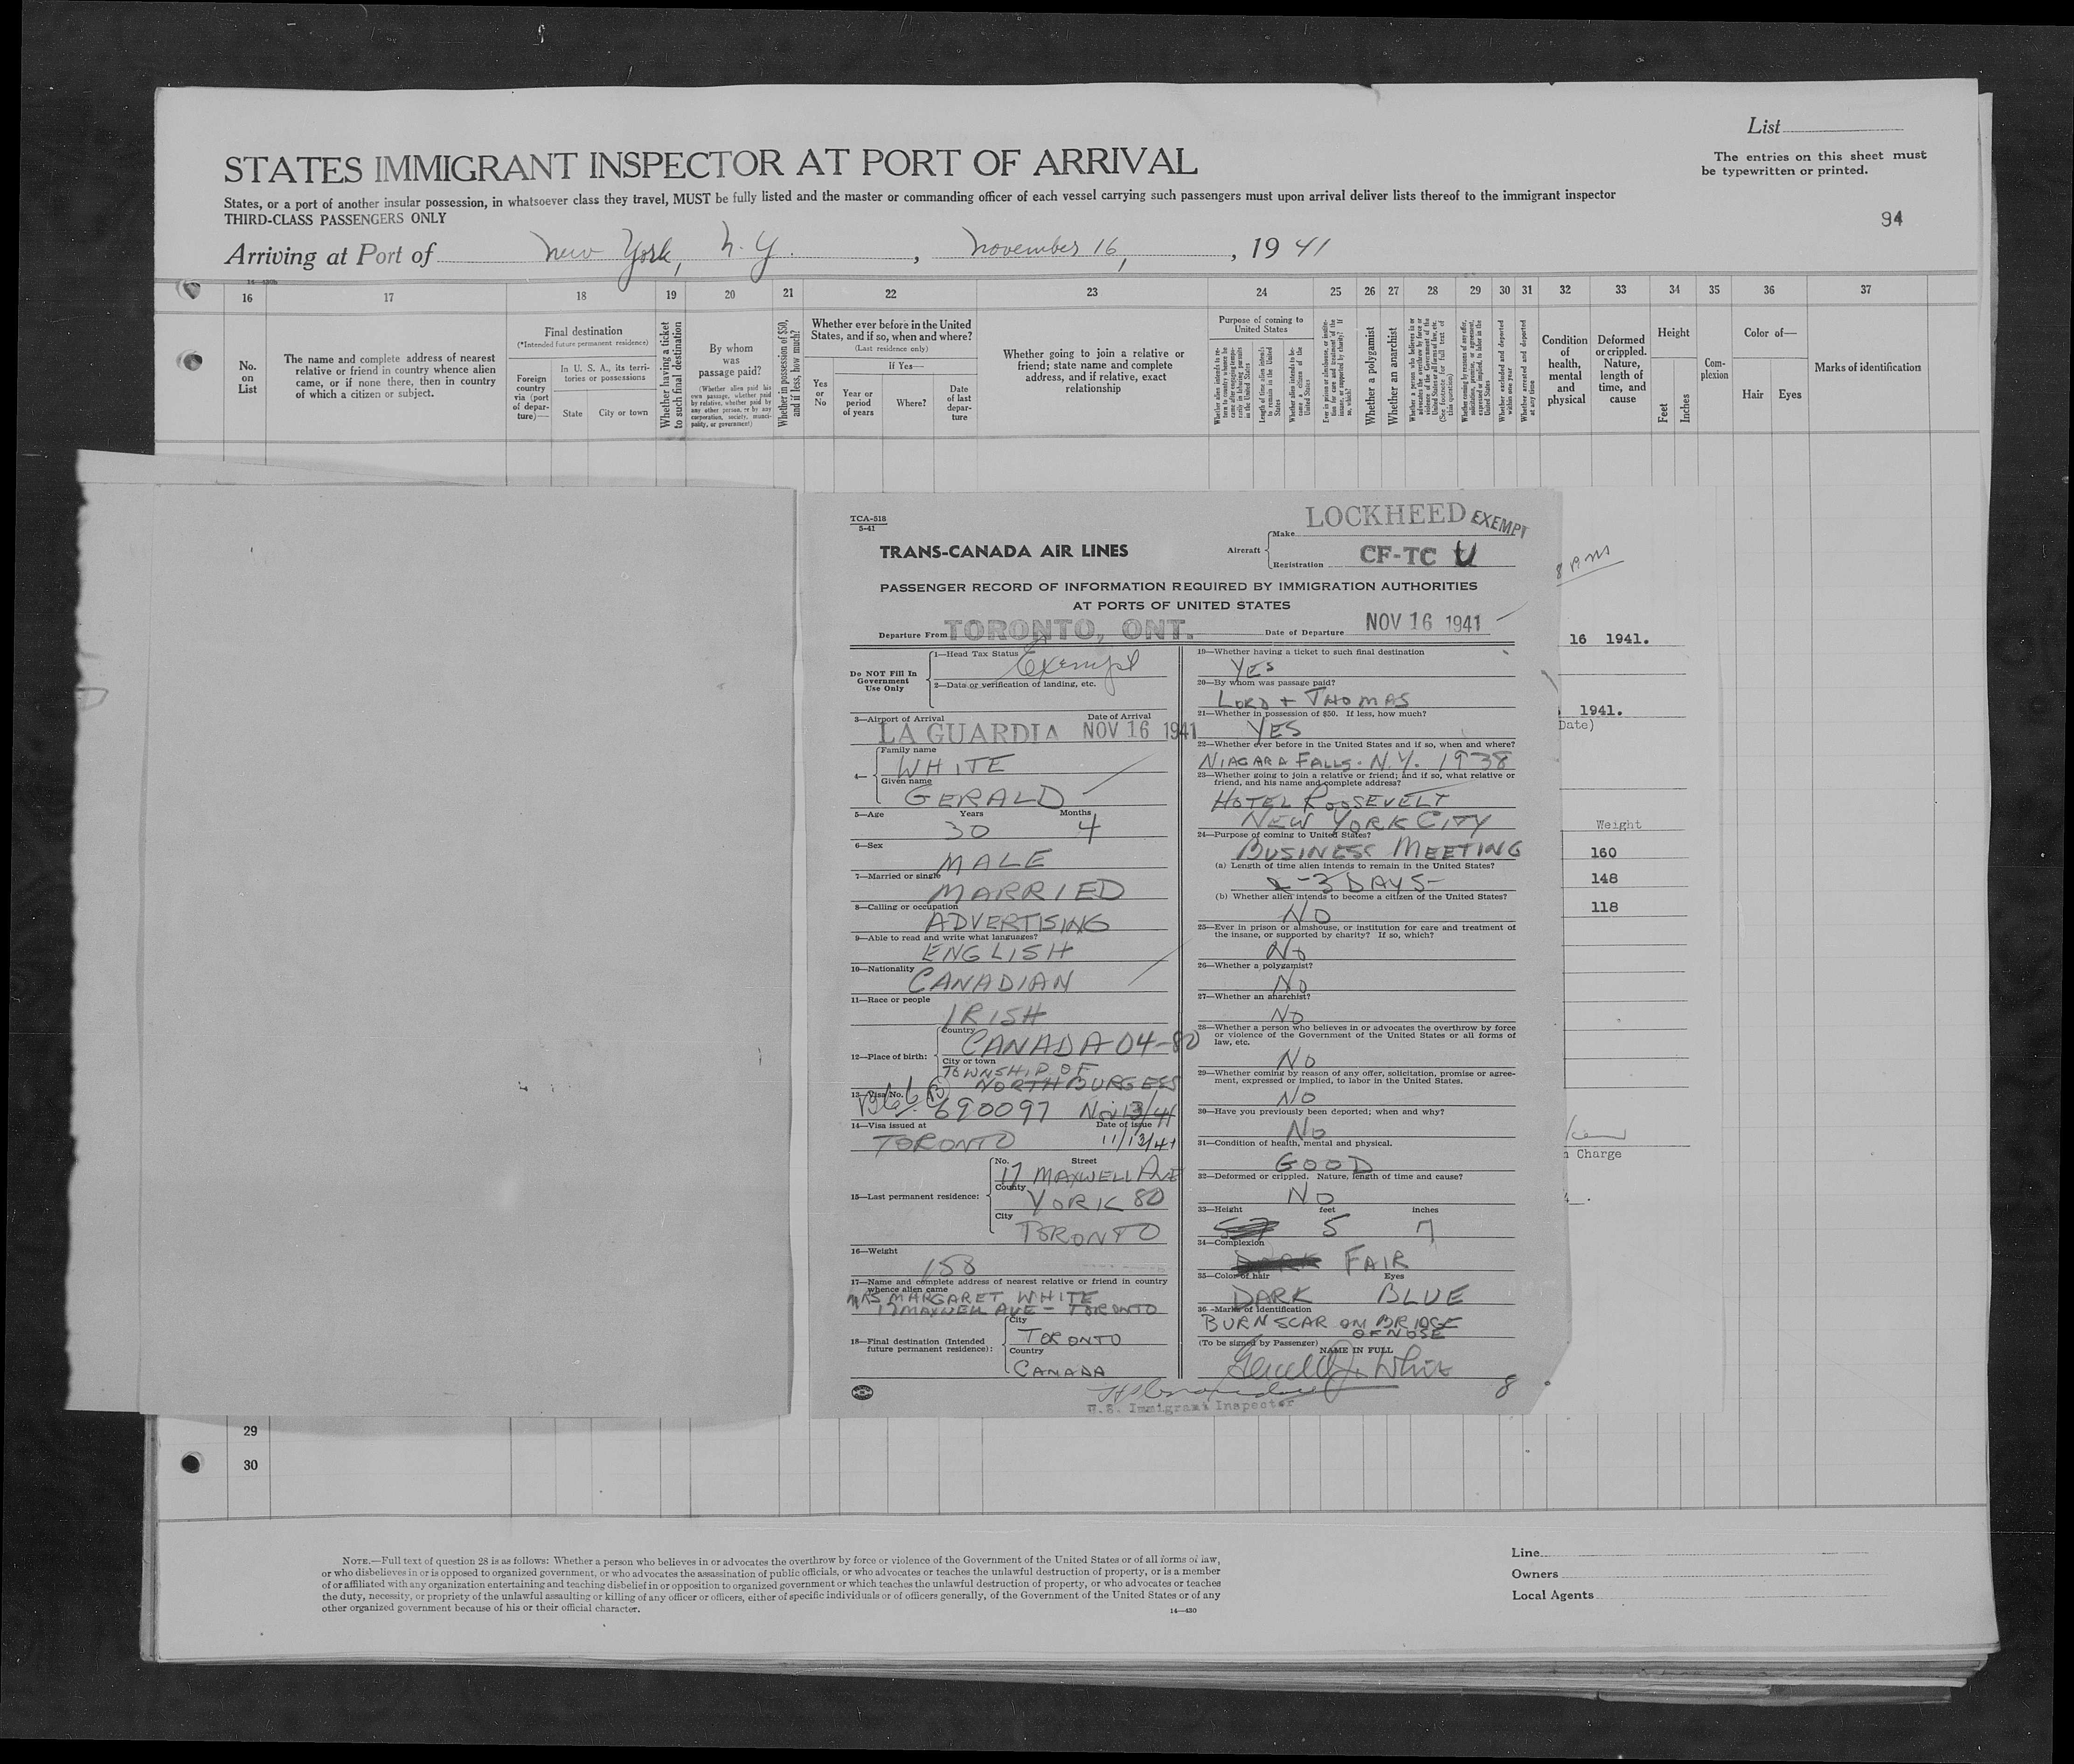 List
STATES IMMIGRANT INSPECTOR AT PORT OF ARRIVAL
The entries on this sheet must
be typewritten or printed.
States, or a port of another insular possession, in whatsoever class they travel, MUST be fully listed and the master or commanding officer of each vessel carrying such passengers must upon arrival deliver lists thereof to the immigrant inspector
THIRD-CLASS PASSENGERS ONLY
94
Arriving at Port of New York, N.Y. , November 16, , 19 41
16 17 18 19 20 21 22 23 24 25 26 27 28 29 30 31 32 33 34 35 36 37
No.
on
List
The name and complete address of nearest
relative or friend in country whence alien
came, or if none there, then in country
of which a citizen or subject.
Final destination
(*Intended future permanent residence)
Foreign
country
via (port
of depar-
ture)—
In U. S. A., its terri-
tories or possessions
State
City or town
Whether having a ticket
to such final destination
By whom
was
passage paid?
(Whether alien paid his
own passage, whether paid
by relative, whether paid by
any other person, or by any
corporation, society, munici-
pality, or government)
Whether in possession of $50,
and if less, how much?
Whether ever before in the United
States, and if so, when and where?
(Last residence only)
Yes
or
No
If Yes—
Year or
period
of years
Where?
Date
of last
depar-
ture
Whether going to join a relative or
friend; state name and complete
address, and if relative, exact
relationship
Purpose of coming to
United States
Length of time alien intends
to remain in the United
States
Whether alien intends to be-
come a citizen of the
United States
Whether a polygamist
Whether an anarchist
Whether arrested and deported
at any time
Condition
of
health,
mental
and
physical
Deformed
or crippled.
Nature,
length of
time, and
cause
Height
Feet
Inches
Com-
plexion
Color of—
Hair
Eyes
Marks of identification
TCA-518
5-41
TRANS-CANADA AIR LINES
Aircraft
Make LOCKHEED EXEMPT
Registration CF-TC U
PASSENGER RECORD OF INFORMATION REQUIRED BY IMMIGRATION AUTHORITIES
AT PORTS OF UNITED STATES
Departure From TORONTO, ONT. Date of Departure NOV 16 1941
Do NOT Fill In
Government
Use Only
1—Head Tax Status Exempt
2—Data or verification of landing, etc.
3—Airport of Arrival Date of Arrival
LA GUARDIA NOV 16 1941
4—
Family name
WHITE
Given name
GERALD
5—Age Years Months
30 4
6—Sex
MALE
7—Married or single
MARRIED
8—Calling or occupation
ADVERTISING
9—Able to read and write what languages?
ENGLISH
10—Nationality
CANADIAN
11—Race or people
IRISH
12—Place of birth:
Country
CANADA 04-80
City or town
TOWNSHIP OF
NORTH BURGESS
13—Visa No.
690097 Nov 13/41
14—Visa issued at Date of issue
TORONTO 11/13/41
15—Last permanent residence:
No. Street
17 MAXWELL AVE
County
YORK 80
City
TORONTO
16—Weight
158
17—Name and complete address of nearest relative or friend in country
whence alien came
MRS MARGARET WHITE
17 MAXWELL AVE - TORONTO
18—Final destination (Intended
future permanent residence):
City
TORONTO
Country
CANADA
19—Whether having a ticket to such final destination
YES
20—By whom was passage paid?
LORD + THOMAS
21—Whether in possession of $50. If less, how much?
YES
22—Whether ever before in the United States and if so, when and where?
NIAGARA FALLS. N.Y. 1938
23—Whether going to join a relative or friend; and if so, what relative or
friend, and his name and complete address?
HOTEL ROOSEVELT
NEW YORK CITY
24—Purpose of coming to United States?
BUSINESS MEETING
(a) Length of time alien intends to remain in the United States?
2-3 DAYS-
(b) Whether alien intends to become a citizen of the United States?
NO
25—Ever in prison or almshouse, or institution for care and treatment of
the insane, or supported by charity? If so, which?
No
26—Whether a polygamist?
No
27—Whether an anarchist?
NO
28—Whether a person who believes in or advocates the overthrow by force
or violence of the Government of the United States or all forms of
law, etc.
NO
29—Whether coming by reason of any offer, solicitation, promise or agree-
ment, expressed or implied, to labor in the United States.
NO
30—Have you previously been deported; when and why?
No
31—Condition of health, mental and physical.
GOOD
32—Deformed or crippled. Nature, length of time and cause?
NO
33—Height feet inches
5 7
34—Complexion
FAIR
35—Color of hair Eyes
DARK BLUE
36—Marks of identification
BURN SCAR ON BRIDGE
OF NOSE
(To be signed by Passenger) NAME IN FULL
Gerald J. White
U.S. Immigrant Inspector
8
8 PM
16 1941.
1941.
Date)
Weight
160
148
118
Charge
29
30
NOTE.—Full text of question 28 is as follows: Whether a person who believes in or advocates the overthrow by force or violence of the Government of the United States or of all forms of law,
or who disbelieves in or is opposed to organized government, or who advocates the assassination of public officials, or who advocates or teaches the unlawful destruction of property, or is a member
of or affiliated with any organization entertaining and teaching disbelief in or opposition to organized government or which teaches the unlawful destruction of property, or who advocates or teaches
the duty, necessity, or propriety of the unlawful assaulting or killing of any officer or officers, either of specific individuals or of officers generally, of the Government of the United States or of any
other organized government because of his or their official character.
14—430
Line
Owners
Local Agents